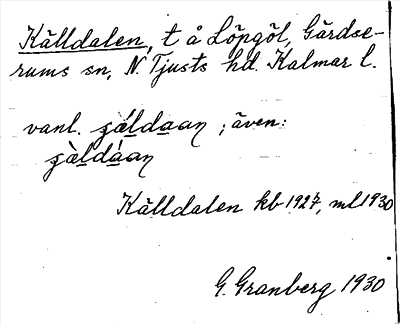 Källdalen, t å Löpgöl, Gärdse-
rums sn, N. Tjusts hd. Kalmar l.
vanl. ʒǽldaaŋ ; även:
ʒæ̀ldáaŋ
Källdalen kb 1927, ml 1930
G. Granberg 1930